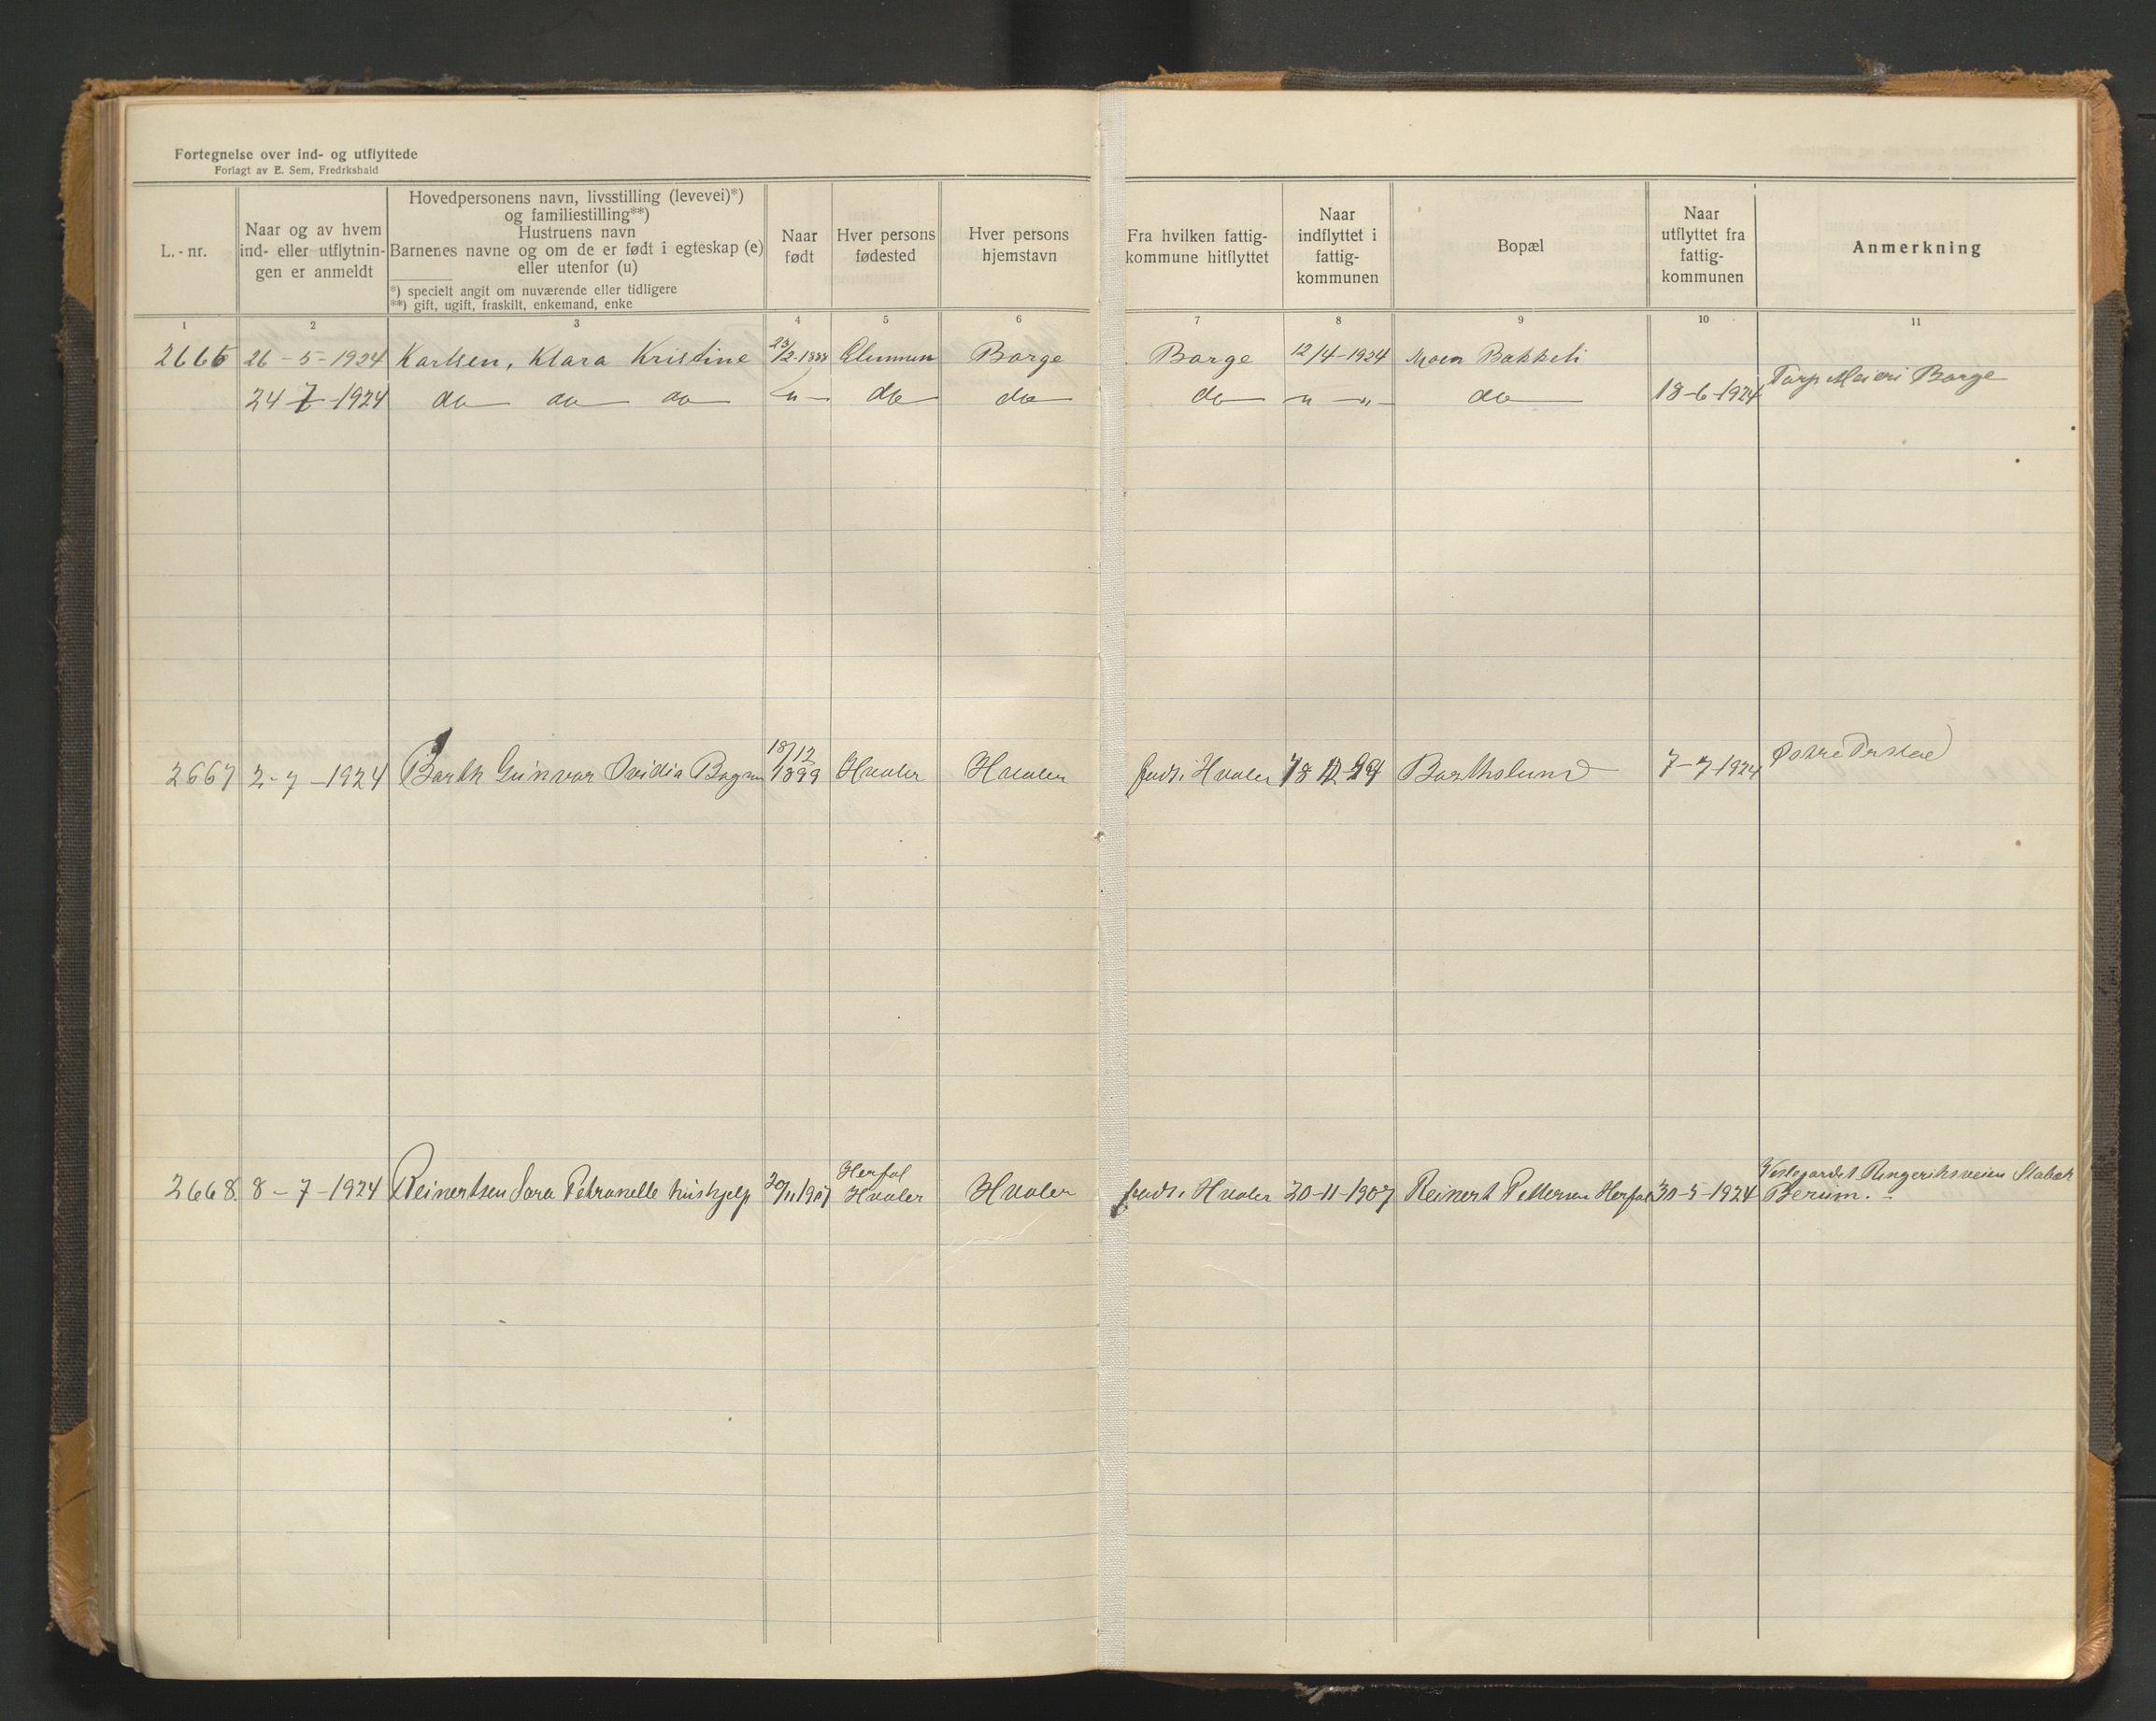 Fortegnelse over ind- og utflyttede
Forlagt av E. Sem, Fredrkshald
L.-nr.
Naar og av hvem
ind- eller utflytnin-
gen er anmeldt
Hovedpersonens navn, livsstilling (levevei)*)
og familiestilling**)
Hustruens navn
Barnenes navne og om de er født i egteskap (e)
eller utenfor (u)
*) specielt angit om nuværende eller tidligere
**) gift, ugift, fraskilt, enkemand, enke
Naar
født
Hver persons
fødested
Hver persons
hjemstavn
Fra hvilken fattig-
kommune hitflyttet
Naar
indflyttet i
fattig-
kommunen
Bopæl
Naar
utflyttet fra
fattig-
kommunen
Anmerkning
1 2 3 4 5 6 7 8 9 10 11
2666 26-5-1924 Karlsen, Klara Kristine 23/2-1888 Glemmen Borge Borge 12/4-1924 Moen Bakkeli
24-7-1924 do do do " do do do " " do 18-6-1924 Torp Meieri Borge
2667 2-7-1924 Barth Gunvor Ovidia 18/12 1899 Hvaler Hvaler født i Hvaler 18 12 99 Bartholund 7-7-1924 Østre
2668. 8-7-1924 Reinertsen Sara Petronelle hushjelp 20/11 1907 Herføl Hvaler Hvaler født i Hvaler 20-11-1907 Reinert Pettersen Herføl 30-5-1924 Vestegardet Ringeriksveien Stabek
Berum.